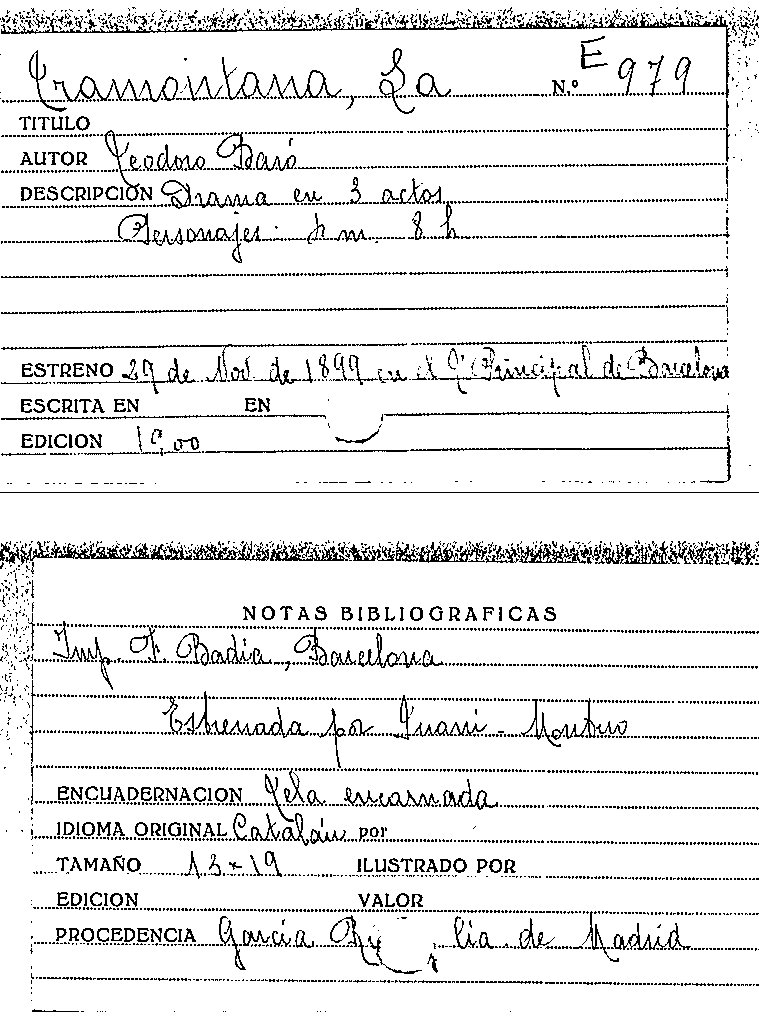 Tramontana, La N.º E 979
TITULO
AUTOR Teodoro Baró
DESCRIPCIÓN Drama en 3 actos
Personajes: m. 8 h
ESTRENO 29 de Nov. de 1899 en el T. Principal de Barcelona
ESCRITA EN EN
EDICION
NOTAS BIBLIOGRAFICAS
Imp. F. Badia, Barcelona
Estrenada por
ENCUADERNACION Tela encarnada
IDIOMA ORIGINAL Catalán por
TAMAÑO 13 x 19 ILUSTRADO POR
EDICION VALOR
PROCEDENCIA García lia de Madrid